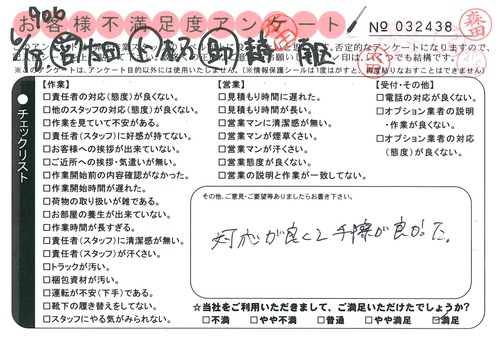 906
お客様不満足度アンケート
№ 032438
森田
【作業】
□責任者の対応(態度)が良くない。
□他のスタッフの対応(態度)が良くない。
□作業を見ていて不安がある。
□責任者(スタッフ)に好感が持てない。
□お客様への挨拶が出来ていない。
□ご近所への挨拶・気遣いが無い。
□作業開始前の内容確認がなかった。
□作業開始時間が遅れた。
□荷物の取り扱いが雑である。
□お部屋の養生が出来ていない。
□作業時間が長すぎる。
□責任者(スタッフ)に清潔感が無い。
□責任者(スタッフ)が汗くさい。
□トラックが汚い。
□梱包資材が汚い。
□運転が不安(下手)である。
□靴下の履き替えをしてない。
□スタッフにやる気がみられない。
【営業】
□見積もり時間に遅れた。
□見積もり時間が長い。
□営業マンに清潔感が無い。
□営業マンが煙草くさい。
□営業マンが汗くさい。
□営業態度が良くない。
□営業の説明と作業が一致してない。
【受付・その他】
□電話の対応が良くない。
□オプション業者の説明
・作業が良くない。
□オプション業者の対応
(態度)が良くない。
チェックリスト
その他、ご意見・ご要望等ありましたらお書き下さい。
対応が良くて手際が良かった。
☆当社をご利用いただきまして、ご満足いただけたでしょうか?
□不満 □やや不満 □普通 □やや満足 □満足